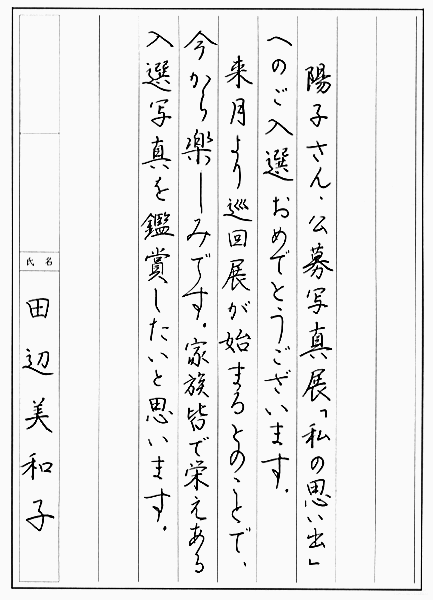 陽子さん、公募写真展「私の思い出」
へのご入選おめでとうございます。
来月より巡回展が始まるとのことで、
今から楽しみです。家族皆で栄えある
入選写真を鑑賞したいと思います。
氏名
田辺美和子